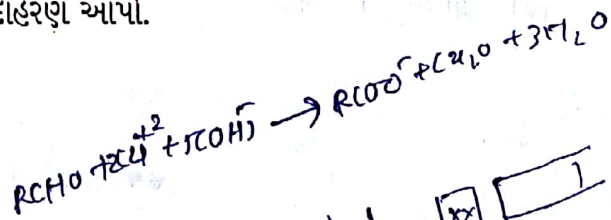 ઉદાહરણ આપો.
RCHO + 2Cu⁺² + 5(OH)⁻ → RCOO⁻ + Cu₂O + 3H₂O
xx